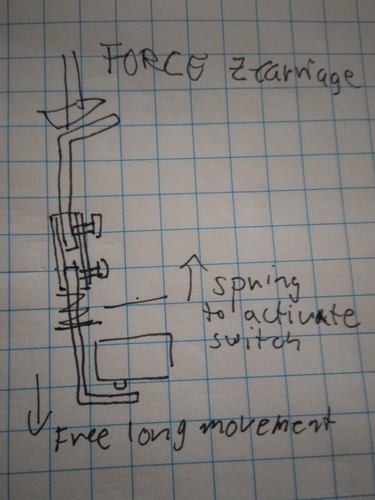 FORCE Z carriage
spring
to activate
switch
Free long movement